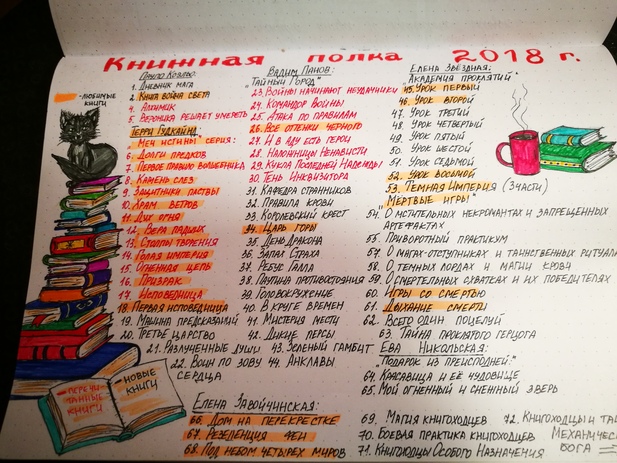 Книжная полка 2018 г.
- любимые книги
Пауло Коэльо:
1. Дневник мага
2. Книга воина света
4. Алхимик
5. Вероника решает умереть
Терри Гудкайнд
Меч истины серия:
6. Долги предков
7. Первое правило волшебника
8. Камень слёз
9. Защитники паствы
10. Храм ветров
11. Дух огня
12. Вера падших
13. Столпы творения
14. Голая империя
15. Огненная цепь
16. Призрак
17. Исповедница
18. Первая исповедница
19. Машина предсказаний
20. Третье царство
21. Разлученные души
22. Воин по зову сердца
Вадим Панов:
"Тайный Город"
23. Войны начинают неудачники
24. Командор войны
25. Атака по правилам
26. Все оттенки черного
27. И в аду есть герои
28. Наложницы Ненависти
29. Кукла Последней Надежды
30. Тень Инквизитора
31. Кафедра странников
32. Правила крови
33. Королевский крест
34. Царь горы
35. День Дракона
36. Запах Страха
37. Ребус Галла
38. Паутина противостояния
39. Головокружение
40. В круге времен
41. Мистерия мести
42. Дикие персы
43. Зеленый гамбит
44. Анклавы
Елена Звездная:
"Академия проклятий"
45. Урок первый
46. Урок второй
47. Урок третий
48. Урок четвертый
49. Урок пятый
50. Урок шестой
51. Урок седьмой
52. Урок восьмой
53. Темная Империя (3 части)
"Мертвые игры"
54. О мстительных некромантах и запрещенных артефактах
55. Приворотный практикум
57. О магах-отступниках и таинственных ритуала
58. О темных лордах и магии крови
59. О смертельных схватках и их победителях
60. Игры со смертью
61. Дыхание смерти
62. Всего один поцелуй
63. Тайна проклятого герцога
Ева Никольская:
"Подарок из преисподней."
64. Красавица и её чудовище
65. Мой огненный и снежный зверь
- перечитанные книги
- новые книги
Елена Завойчинская:
66. Дом на перекрестке
67. Резиденция феи
68. Под небом четырех миров
69. Магия книгоходцев
70. Боевая практика книгоходцев
71. Книгоходцы Особого Назначения
72. Книгоходцы и тай
механическ
бога